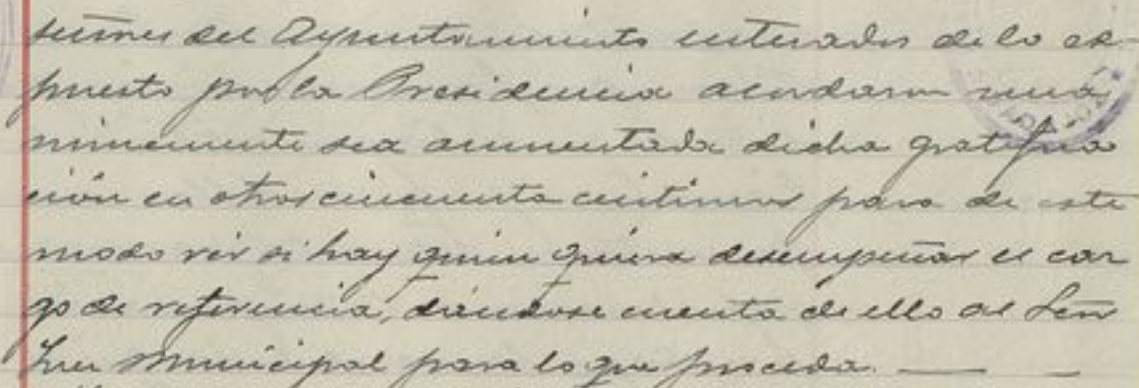 señores del Ayuntamiento enterados de lo ex-
puesto por la Presidencia acordaron uná
nimemente sea aumentada dicha gratifica
ción en otros cincuenta centimos para de este
modo ver si hay quien quiera desempeñar el car
go de referencia, dandose cuenta de ello al Señ
Juez Municipal para lo que proceda. —— —